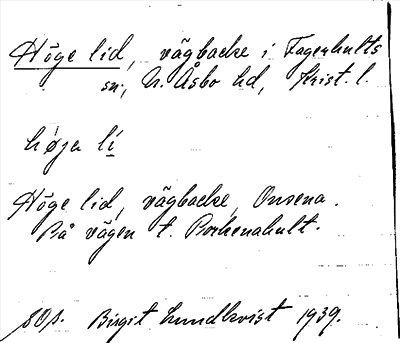 Höge lid, vägbacke i Fagerhults
sn, N. Åsbo hd, Krist. l.
höga lí
Höge lid, vägbacke, Onsena.
På vägen t. Porkenahult.
Birgit Lundkvist 1939.